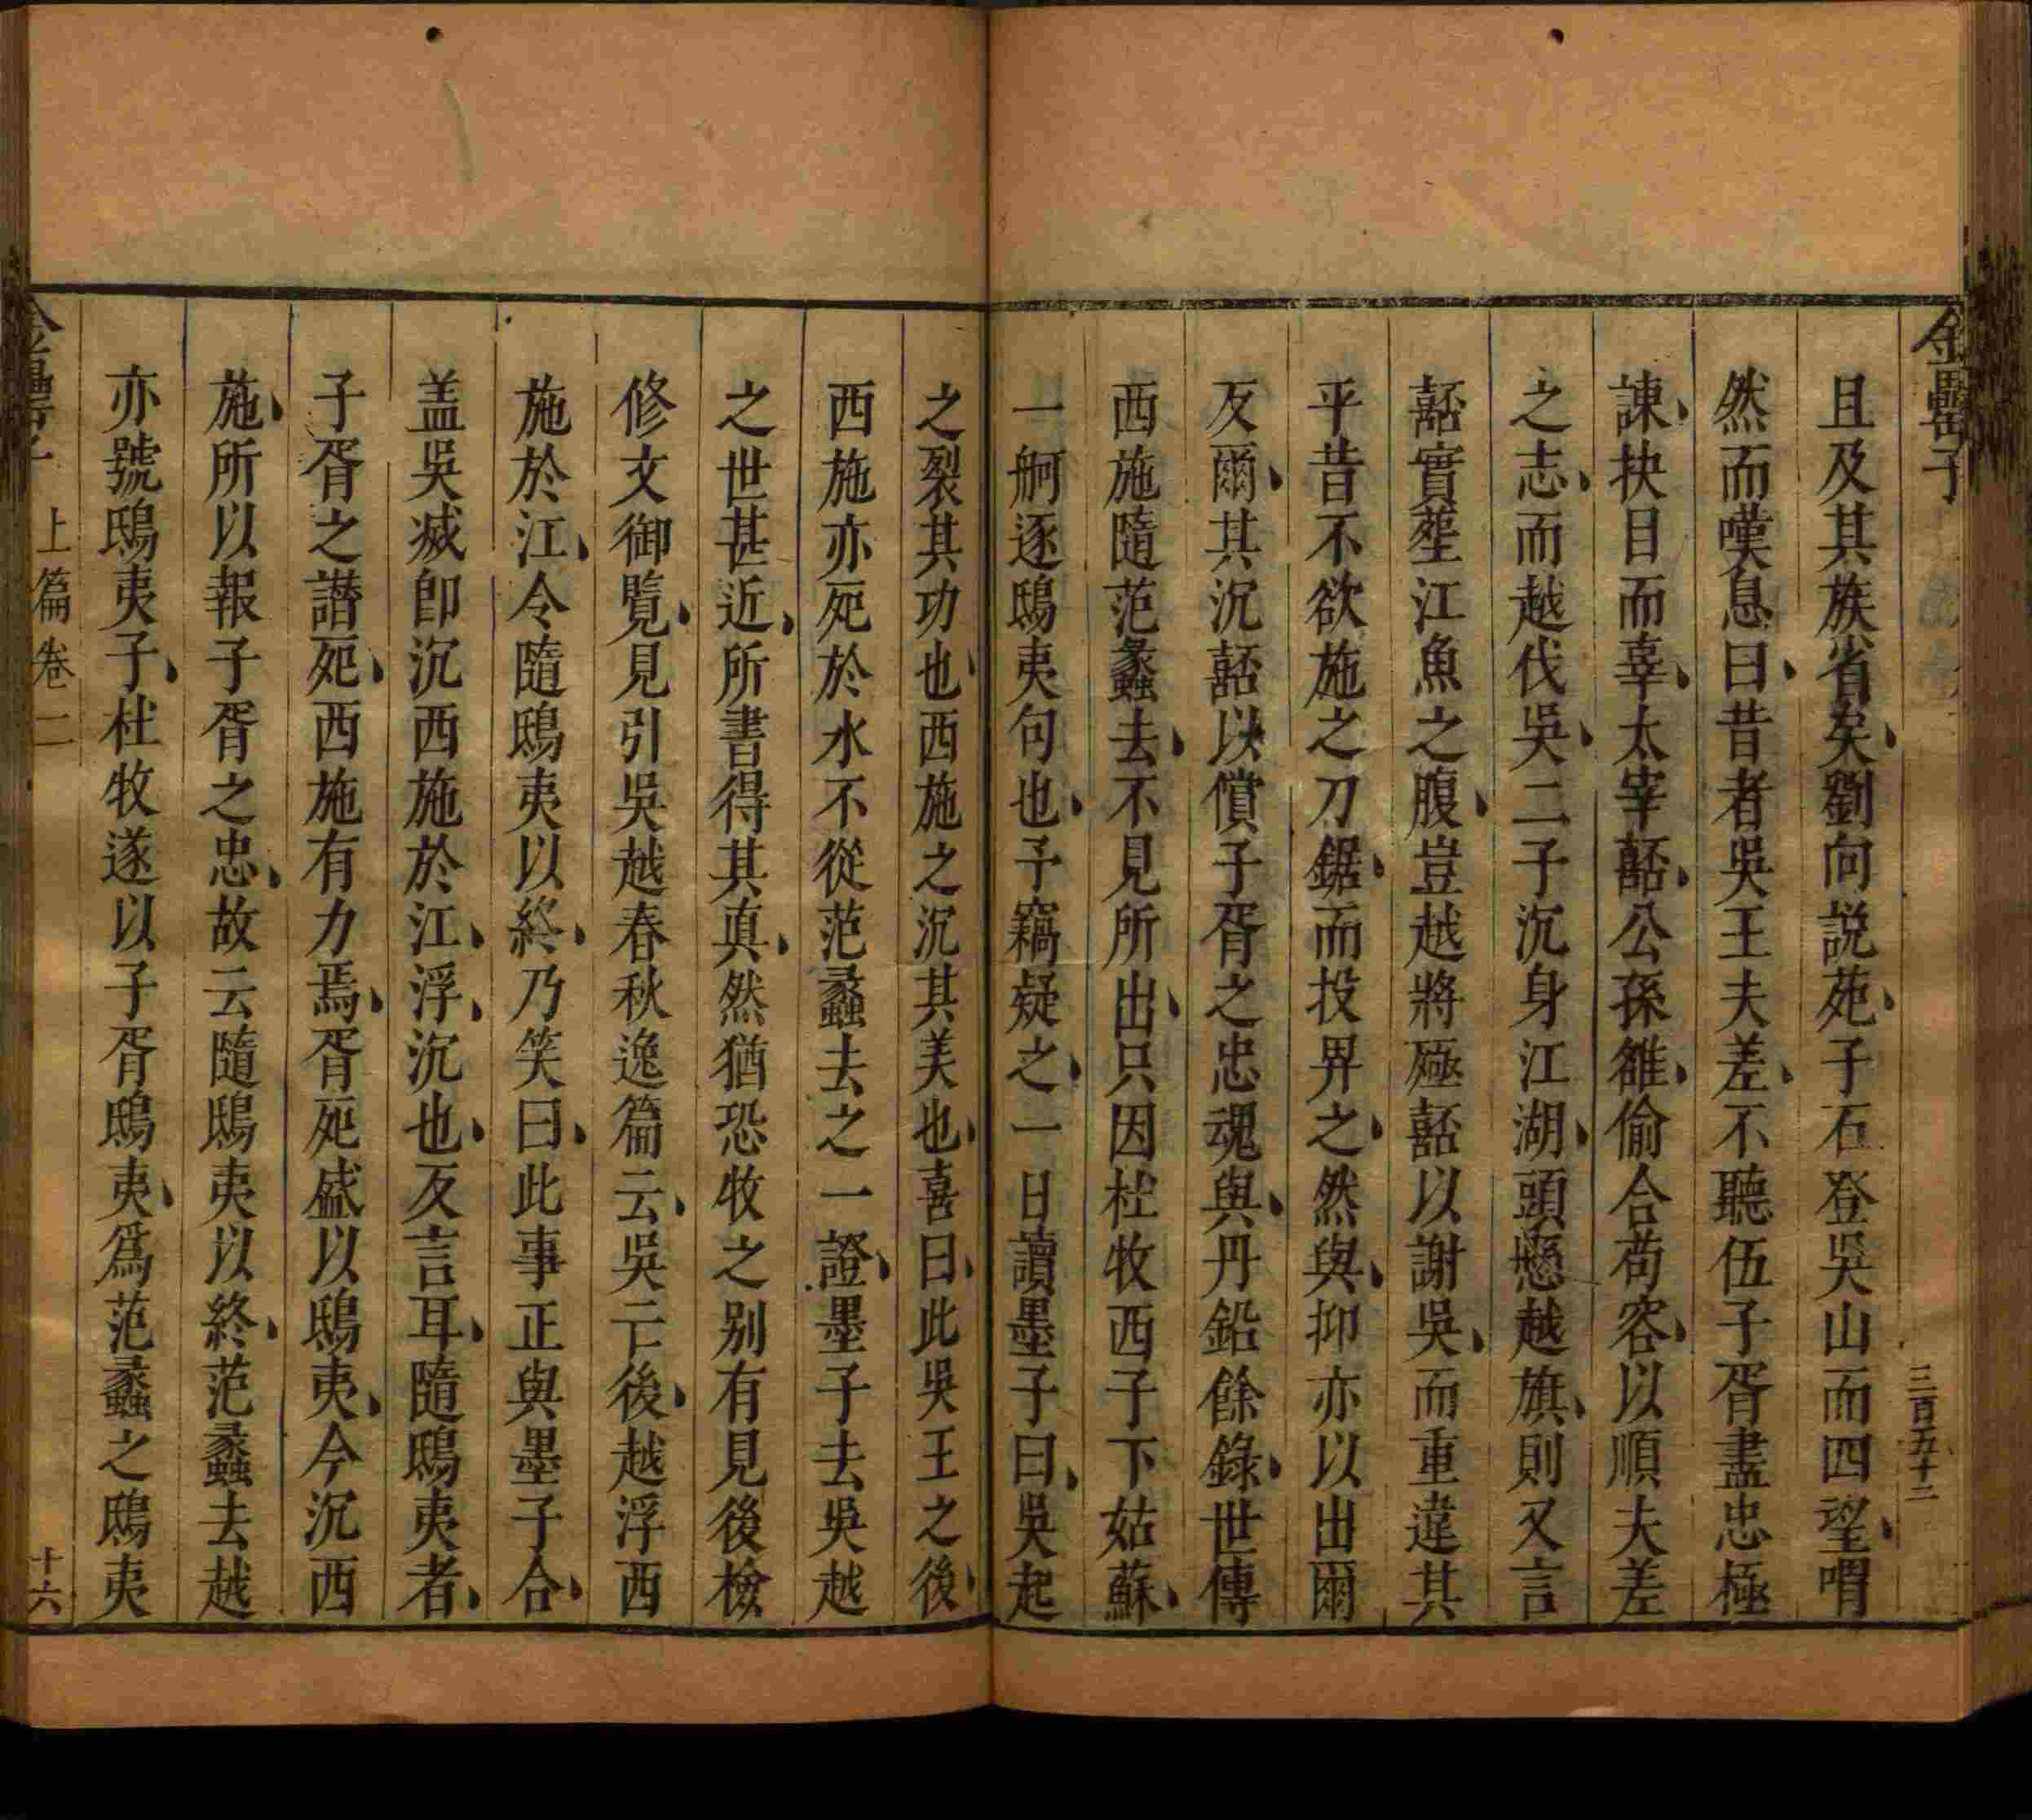 金罍子
三百五十二
且及其族省矣劉向説苑子石登吳山而四望喟
然而嘆息曰昔者吳王夫差不聽伍子胥盡忠極
諫抉目而辜太宰嚭公孫雒偷合苟容以順夫差
之志而越伐吳二子沉身江湖頭懸越旗則又言
嚭實塟江魚之腹豈越將殛嚭以謝吳而重違其
平昔不欲施之刀鋸而投畀之然與抑亦以出爾
反爾其沉嚭以償子胥之忠魂與丹鉛餘錄世傳
西施隨范蠡去不見所出只因杜牧西子下姑蘇
一舸逐鴟夷句也予竊疑之一日讀墨子曰吳起
之裂其功也西施之沉其美也喜曰此吳王之後
西施亦死於水不從范蠡去之一證墨子去吳越
之世甚近所書得其真然猶恐牧之别有見後檢
修文御覽見引吳越春秋逸篇云吳亡後越浮西
施於江令隨鴟夷以終乃笑曰此事正與墨子合
盖吳滅卽沉西施於江浮沉也反言耳隨鴟夷者
子胥之譖死西施有力焉胥死盛以鴟夷今沉西
施所以報子胥之忠故云隨鴟夷以終范蠡去越
亦號鴟夷子杜牧遂以子胥鴟夷爲范蠡之鴟夷
金罍子
上篇卷二
十六